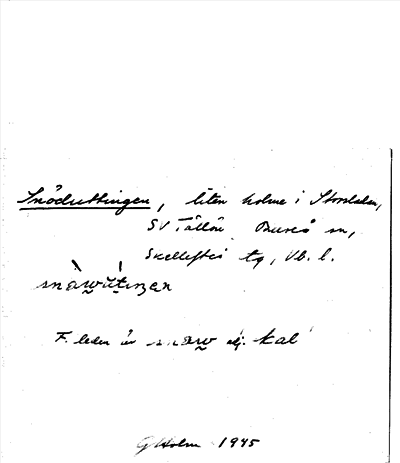 Snöduttingen, liten holme i Storslalen,
SV Tällöu Bureå sn,
Skellefteå tg, Vb. l.
snàw̯út̯ıŋen
F. leden är snaw̯ adj. kal
G Holm 1945